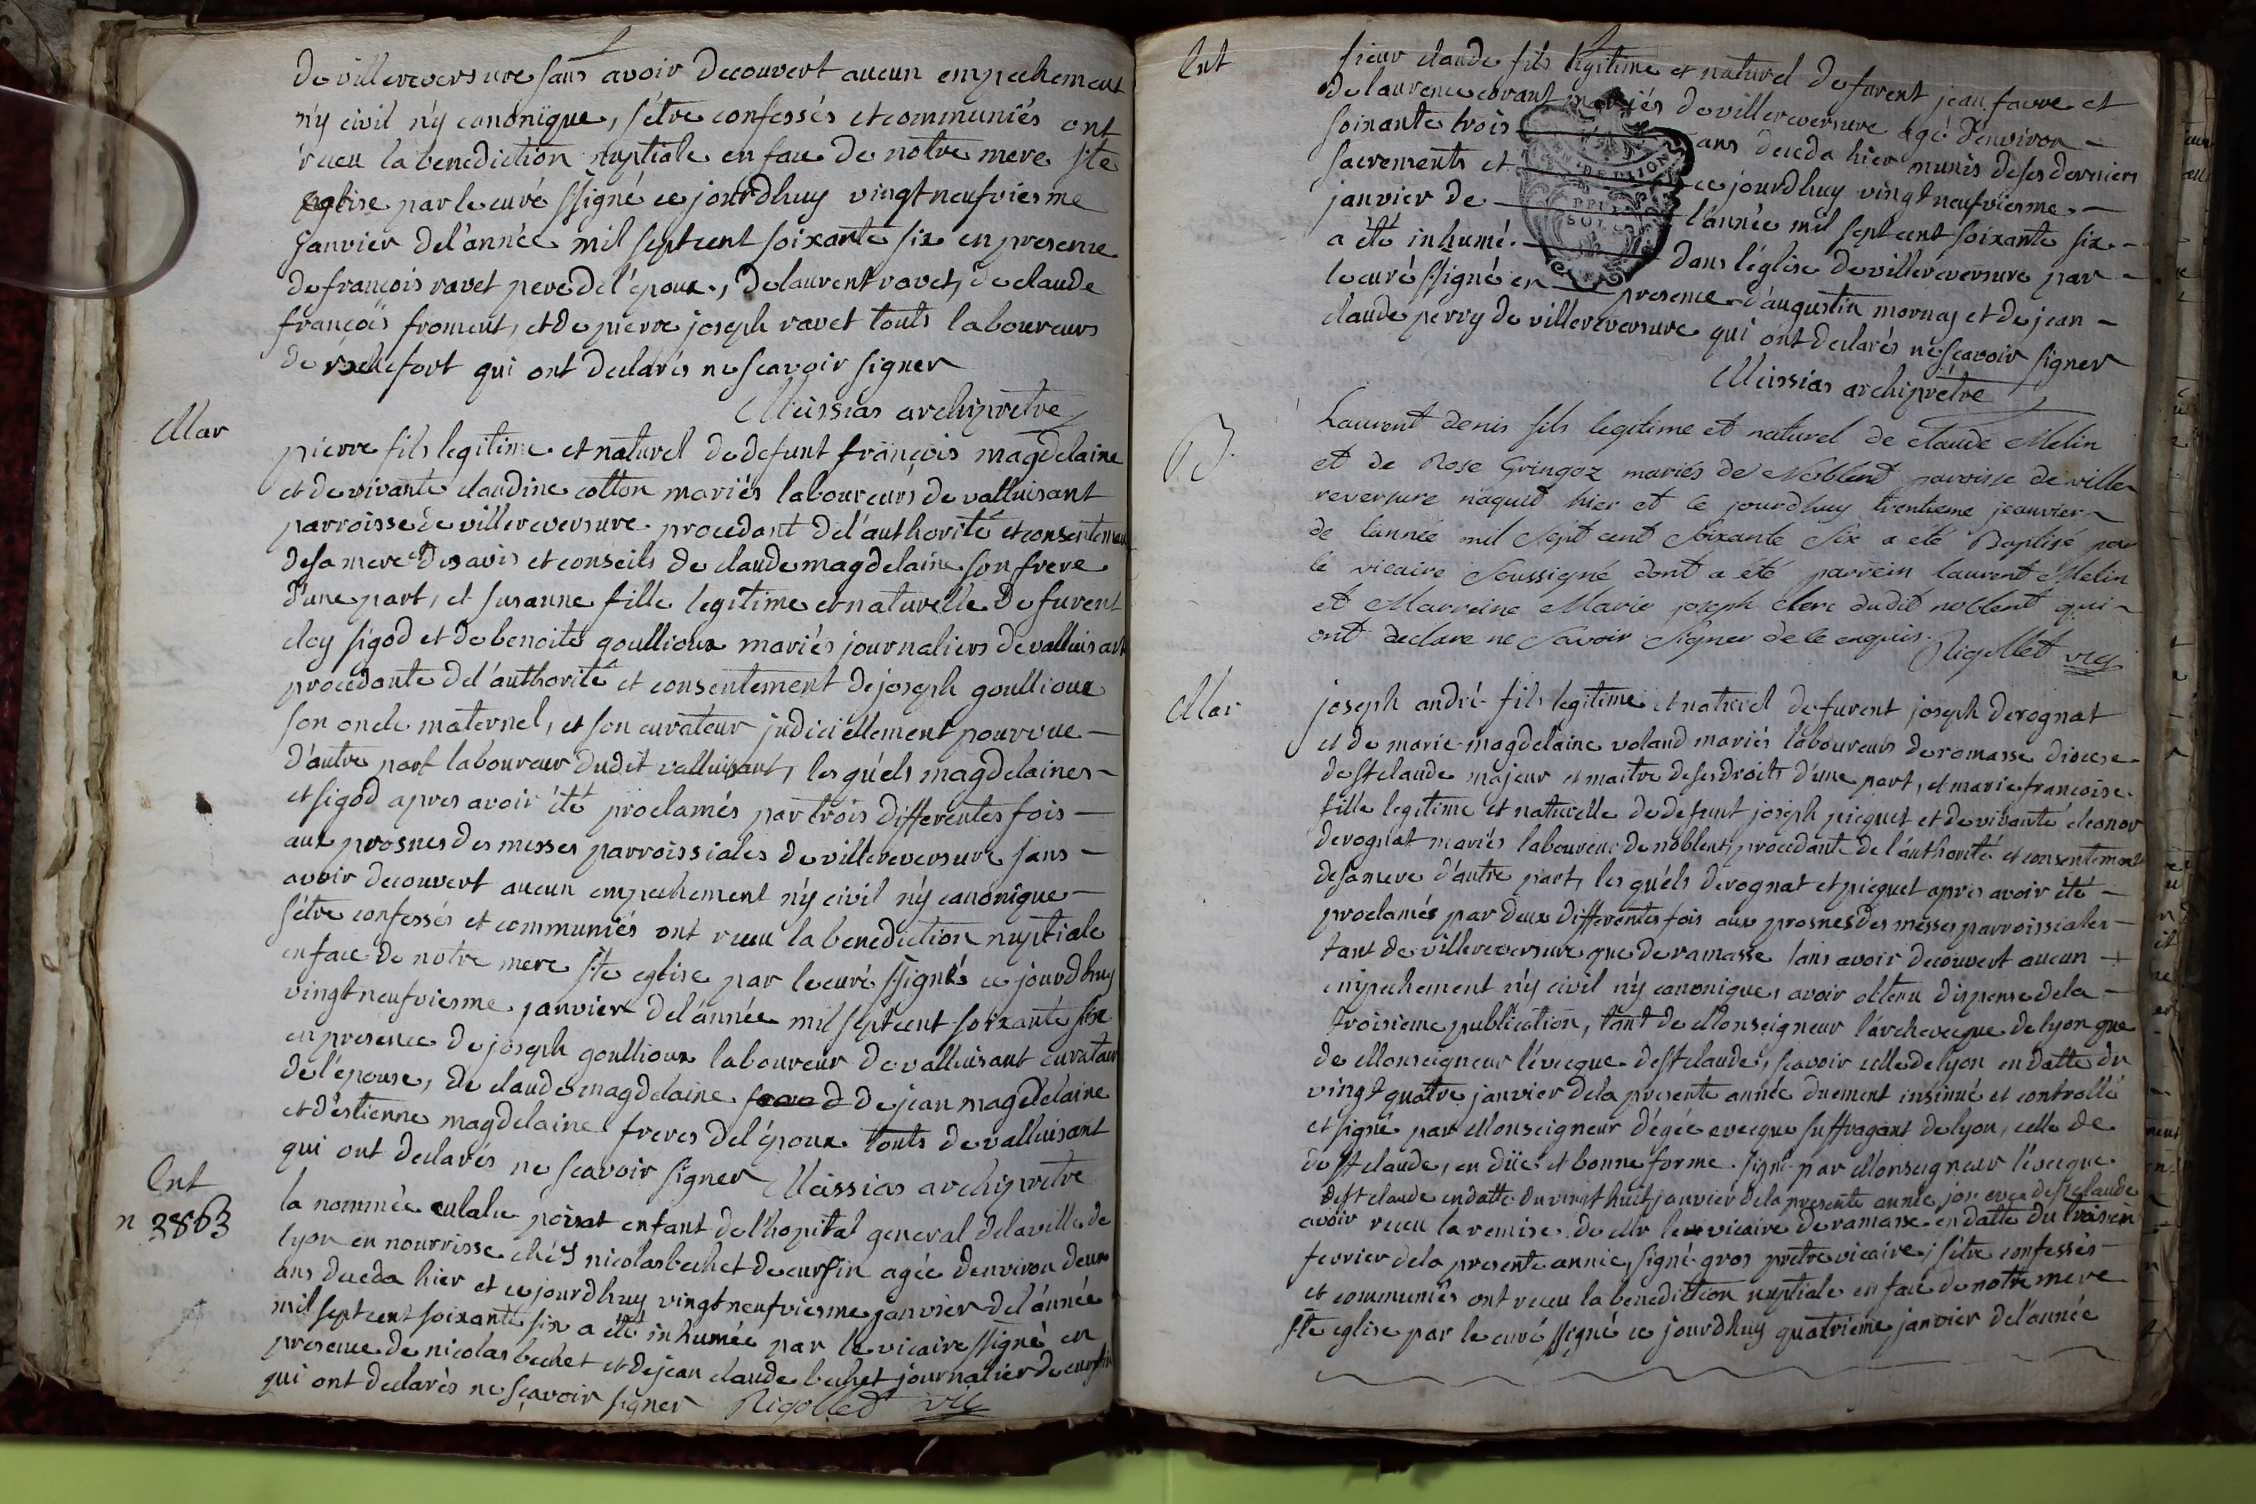 de villereversure sans avoir decouvert aucun empechement
n'y civil n'y canonique, s'étre confessés et communiés ont
receu la benediction nuptiale en face de notre mere ste
eglise par le curé ssigné ce jourdhuy vingt neufviesme
janvier de l'année mil sept cent soixante six en presence
de françois ravet pere de l'époux, de laurent ravet, de claude
françois froment, et de pierre joseph ravet touts laboureurs
de rochefort qui ont declarés ne scavoir signer
Meissias archiprêtre
Mar
pierre fils legitime et naturel de defunt françois magdelaine
et de vivante claudine cotton mariés laboureurs de valluisant
parroisse de villereversure procedant de l'authorité et consentement
de sa mere et des avis et conseils de claude magdelaine son frere
d'une part, et susanne fille legitime et naturelle de furent
cloy sigod et de benoite goullioux mariés journaliers de valluisant
procedante de l'authorité et consentement de joseph goullioux
son oncle maternel, et son curateur judiciellement pourvue
d'autre part laboureur dudit valluisant, les quéls magdelaines
et sigod apres avoir été proclamés par trois differentes fois
aux prosnes des messes parroissiales de villereversure sans
avoir decouvert aucun empechement n'y civil n'y canonique
s'étre confessés et communiés ont receu la benediction nuptiale
en face de notre mere ste eglise par le curé ssigné ce jourdhuy
vingt neufviesme janvier de l'année mil sept cent soixante six
en presence de joseph goullioux laboureur de valluisant curateur
de l'épouse, de claude magdelaine de jean magdelaine
et d'estienne magdelaine freres de l'époux touts de valluisant
qui ont declarés ne scavoir signer Meissias archiprêtre
Ent
n 3863
la nommée eulalie poisat enfant de l'hopital general de la ville de
lyon en nourrisse chés nicolas bechet de cursin agée denviron deux
ans deceda hier et ce jourdhuy vingt neufviesme janvier de l'année
mil sept cent soixante six a été inhumée par le vicaire ssigné en
presence de nicolas bechet et de jean claude bechet journalier de cursin
qui ont declarés ne scavoir signer Rigollet vic
Ent
sieur claude fils legitime et naturel de furent jean favre et
de laurence corant mariés de villereversure agé d'environ
soixante trois ans deceda hier munis de ses derniers
sacrements et ce jourdhuy vingt neufviesme
janvier de l'année mil sept cent soixante six
a été inhumé dans l'église de villereversure par
le curé ssigné en presence d'augustin mornay et de jean
claude perry de villereversure qui ont declarés ne scavoir signer
Meissias archiprêtre
B.
Laurent denis fils legitime et naturel de claude Melin
et de Rose Gringoz mariés de Noblent parroisse de ville
reversure naquit hier et ce jourdhuy trentieme jeanvier
de l'année mil Sept cent Soixante Six a été Baptisé par
le vicaire Soussigné dont a été parrein laurent Melin
et Marreine Marie joseph clerc dudit noblent qui
ont declare ne Savoir Signer de ce enquis. Rigollet vic
Mar
joseph andré fils legitime et naturel de furent joseph derognat
et de marie magdelaine voland mariés laboureurs de romasse diocese
de st claude majeur et maitre de ses droits d'une part, et marie francoise
fille legitime et naturelle de defunt joseph picquet et de vivante eleonor
derognat mariés laboureur de noblent, procedante de l'authorité et consentement
de sa mere d'autre part, les quéls derognat et picquet apres avoir été
proclamés par deux differentes fois aux prosnes des messes parroissiales
tant de villereversure que de ramasse sans avoir decouvert aucun
empechement n'y civil n'y canonique, avoir obtenu dispense de la
troisieme publication, tant de Monseigneur l'archeveque de lyon que
de Monseigneur l'évecque de st claude, scavoir celle de lyon en datte du
vingt quatre janvier de la presente année duement insinué et controllé
et signé par Monseigneur d'égée evecque suffragant de lyon, celle de
de st claude, en düe et bonne forme signé par Monseigneur l'évecque
de st claude en datte du vingt huit janvier de la presente année jos evec de st claude
avoir receu la remise de Mr le vicaire de ramasse en datte du trois en
fevrier de la presente année, signé gros prêtre vicaire, s'étre confessés
et communiés ont receu la benediction nuptiale en face de notre mere
ste eglise par le curé ssigné ce jourdhuy quatrieme janvier de l'année